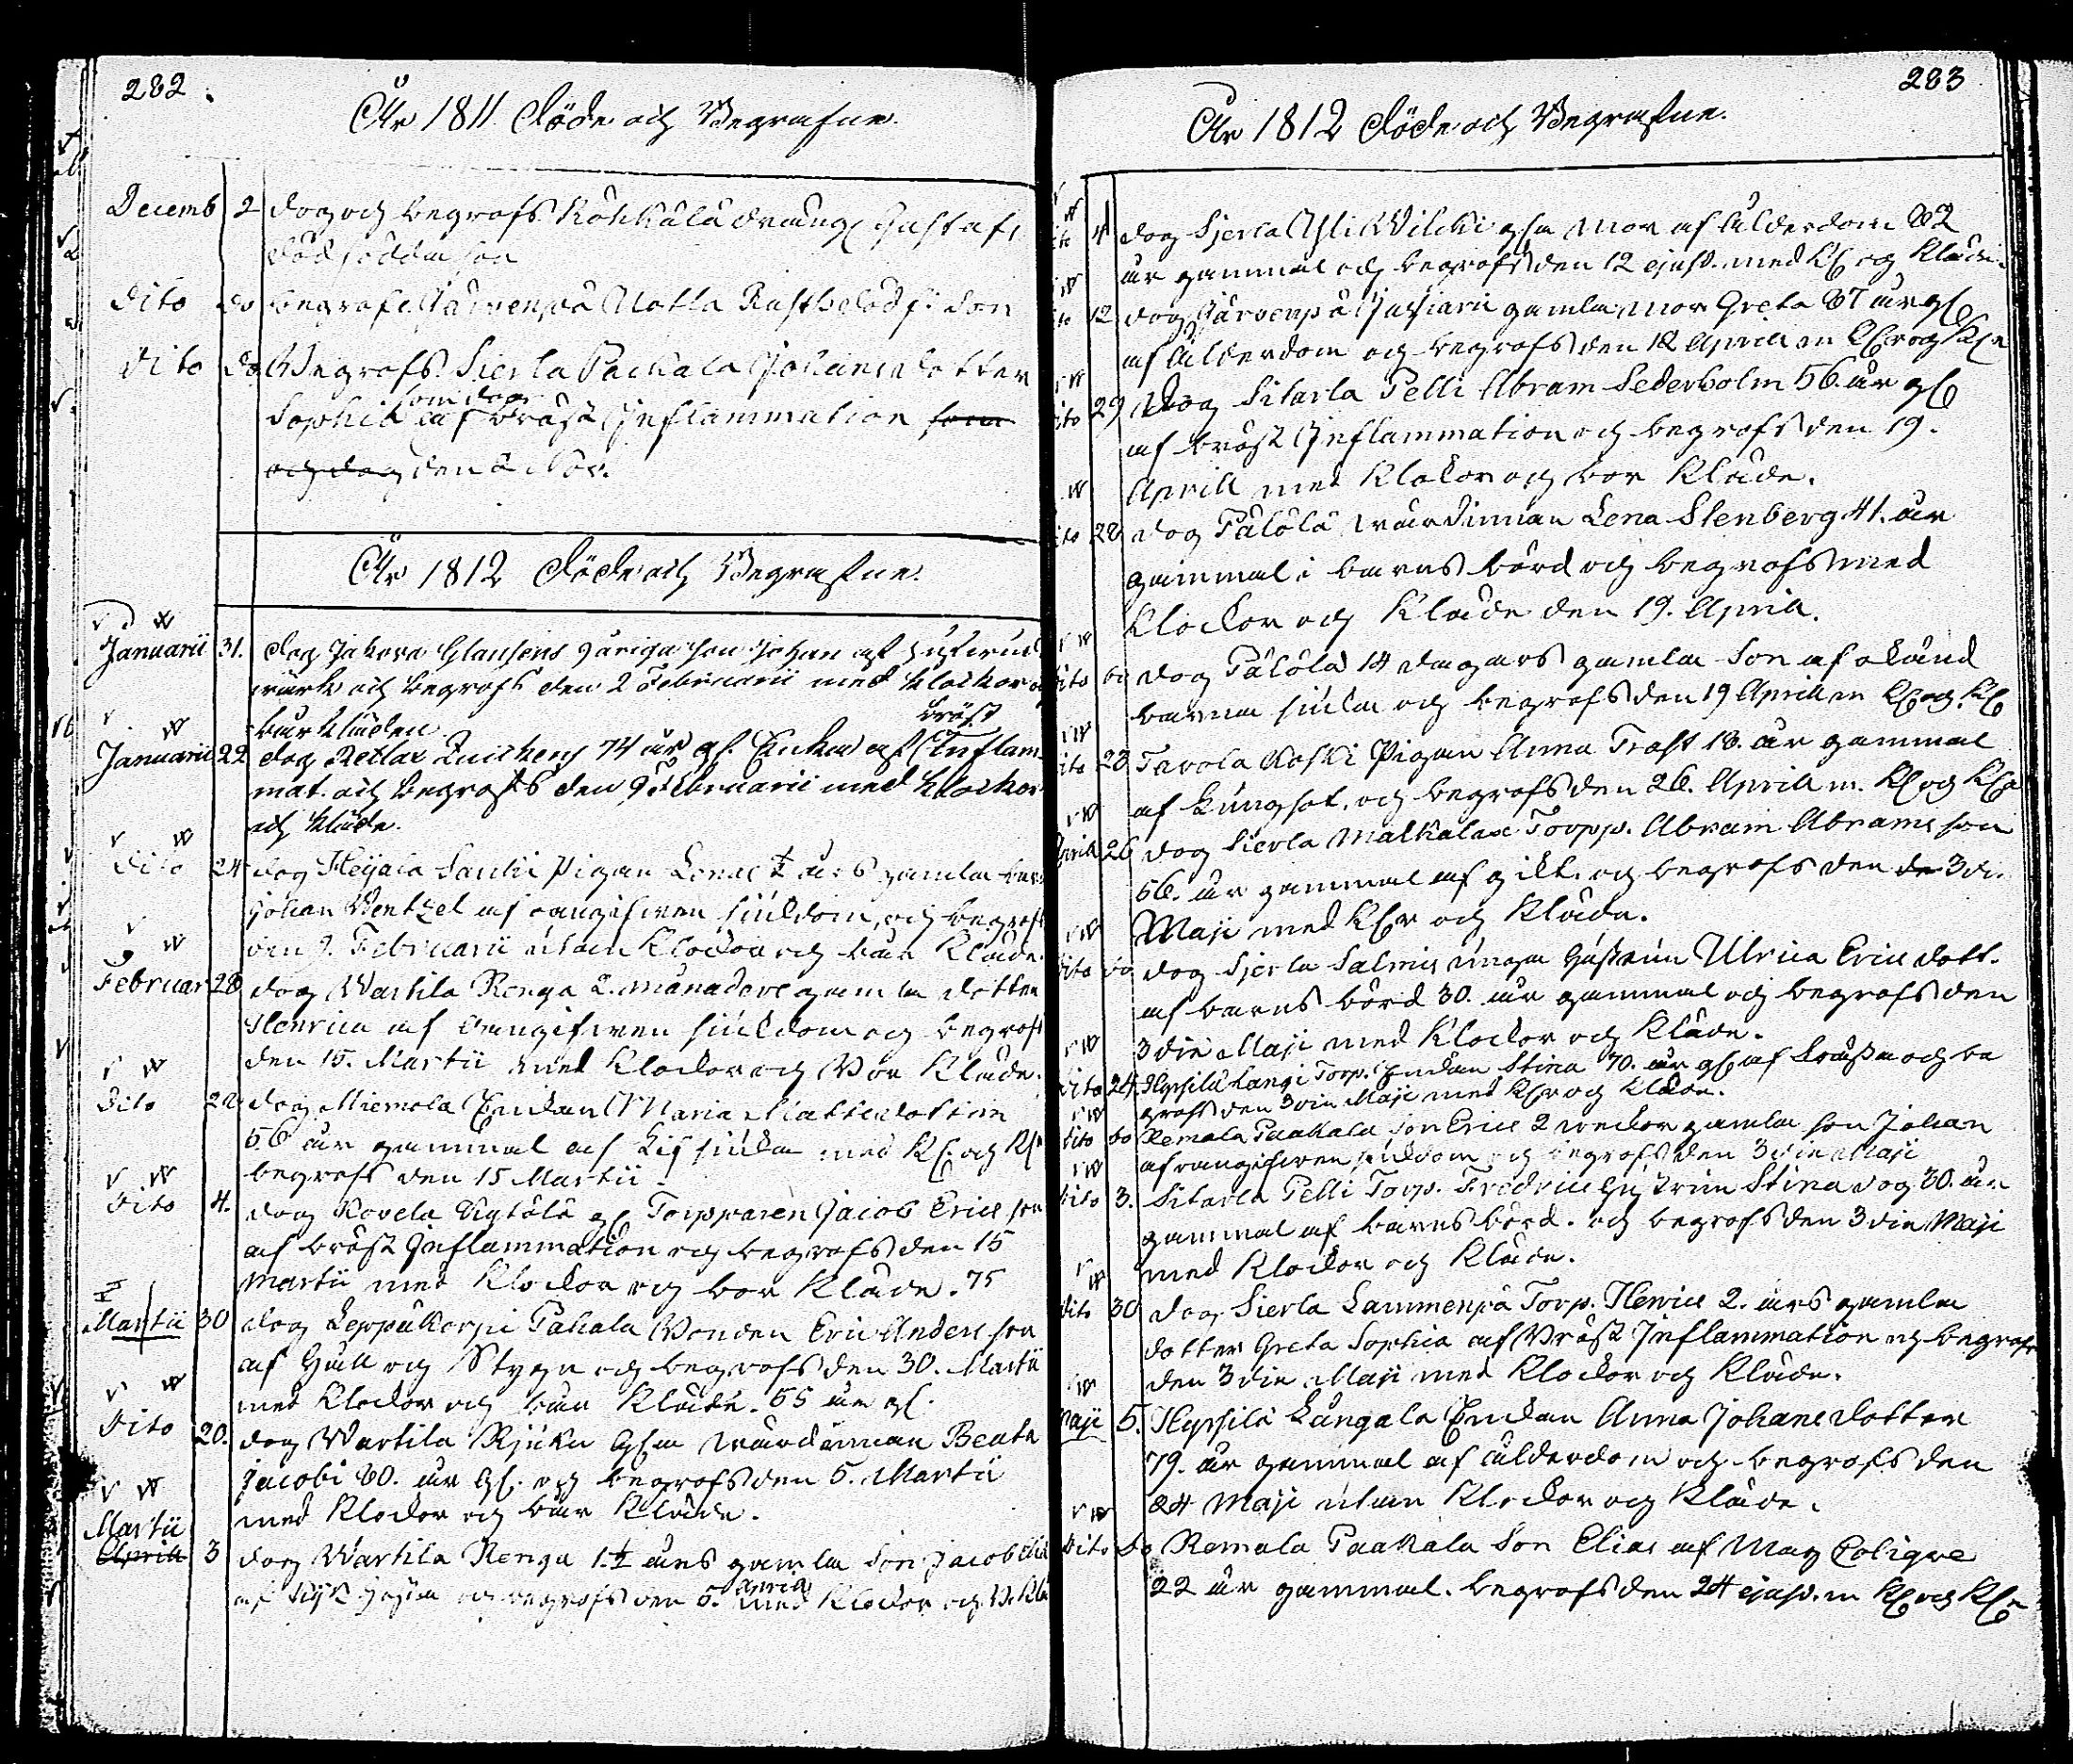 282.
År 1811 döde och Begrafne.
Decemb 2 dog och begrofs Kökkälä drängs Gustafs
dödfödda son
dito do begrofs Järvenpä Matts Rusth. dödf. Son
dito do Begrofs Sierla Packala Johans dotter
som dog
Sophia af bröst Inflammation som
och dog den 2 Nov.
År 1812 döde och Begrafne.
Januarii 31. dog Jakova Clausens 9 åriga son Johan af
wärk och begrofs den 2 Februarii med klockor o
bårkläden
bröst
Januarii 22 dog Detlax Zuickens 74 år gl. Enka af Inflam-
mat. och begrofs den 9 Februarii med klockor
och kläde.
dito 24 dog Heijaia Santti Pigan Lenas ½ års gamla barn
Johan Wentzel af oangifwen siukdom, och begrofs
den 9. Februarii utan Klockor och bår Kläde.
Februar 28 dog Wartila Renga 2. månaders gamla dotter
Henrica af oangifwen siukdom och begrofs
den 15. Martii med Klockor och Bår Kläde.
dito 22 dog Miemola Enckan Maria Mattsdotter
56 år gammal af siuka med Kl. och Kl.
begrofs den 15 Martii.
dito 4. dog Kovela Kytölä gl. Torpparen Jacob Ericsson
af bröst Inflammation och begrofs den 15
Martii med Klockor och bår Kläde. 75
Martii 30 dog Leppäkorpi Pakala Bonden Eric Anders son
af Håll och Styng och begrofs den 30. Martii
med Klockor och bår Kläde. 55 år gl.
dito 20. dog Wartila Rjuku gla wärdinnan Beata
Jacobi 80. år gl. och begrofs den 5. Martii
med Klockor och bår Kläde.
Martii
Aprill 3 dog Wartila Renga 1½ års gamla Son Jacob
aprill
af hosta och begrofs den 5. med Klockor och B. Klä
283
År 1812 döde och Begrafne.
4 dog Sjerla Yli Wilcki gla Mor af ålderdom 82
år gammal och begrofs den 12 ejusd. med Kl. och Kläde.
12 dog Järvenpä Jussiaris gamla Mor Greta 87 år gl.
af ålderdom och begrofs den 12 Aprill m Kl. och Kl.
dito 29 dog Sitarla Pelli Abram Sederholm 56. år gl.
af bröst Inflammation och begrofs den 19.
Aprill med Klockor och bår Kläde.
dito 22 dog Pälölä wärdinnan Lena Stenberg 41. år
gammal i barns börd och begrofs med
Klockor och Kläde den 19. Aprill.
dito do dog Pälölä 14 dagars gamla Son af okänd
barna siuka och begrofs den 19 Aprill m Kl. och Kl.
dito 23 Tavola Koski Pigan Anna Trast 18. år gammal
af lungsot. och begrofs den 26. Aprill m. Kl. och Kl.
Aprill 26 dog Sierla Malkalax Torpp. Abram Abrams son
56. år gammal af gikt. och begrofs den 3 di.
Maji med Kl. och Kläde.
dito do dog Sjerla Salmis unga Hustrun Ulrica Erics dott.
af barns börd 30. år gammal och begrofs den
3 die Maji med Klockor och Kläde.
dito 24. Hypsilä Langi Torp. Enckan Stina 70. år gl. af och be
grofs den 3 die Maji med Kl. och Kläde.
dito do Remala Paakala son Erics 2 weckor gamla son Johan
af oangifwen siukdom och begrofs den 3 die Maji
dito 3. Sitarla Pelli Torp. Fredrics Hustrun Stina dog 30. år
gammal af barns börd. och begrofs den 3 die Maji
med Klockor och Kläde.
dito 30 dog Sierla Lammenpä Torp. Henrics 2. års gamla
dotter Greta Sophia af Bröst Inflammation och begrofs
den 3 die Maji med Klockor och Kläde.
Maji 5. Hypsilä Lungala Enckan Anna Johans dotter
79. år gammal af ålderdom och begrofs den
24 Maji utan Klockor och Kläde.
dito do Remala Paakala Son Elias af Mag Colique
22 år gammal. begrofs den 24 ejusd. m Kl. och Kl.